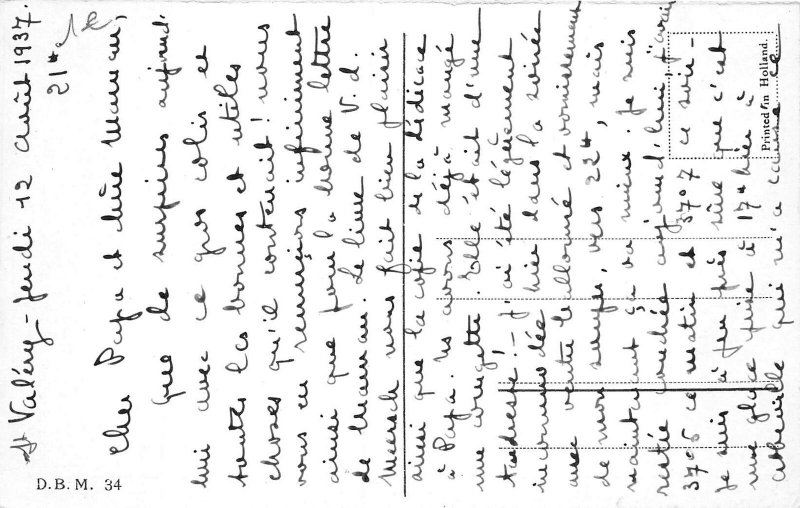 St Valéry - Jeudi 12 août 1937.
21h
Cher Papa et chère Maman,
Que de surprises aujourd'
hui avec ce gros colis et
toutes les bonnes et utiles
choses qu'il contenait ! nous
vous en remercions infiniment
ainsi que pour la bonne lettre
de Maman. Le livre de V. d.
Meersch nous fait bien plaisir
ainsi que la copie de la dédicace
à Papa. Ns avons déjà mangé
une courgette. Elle était d'une
tendresse ! - J'ai été légèrement
incommodée hier dans la soirée
avec ventre ballonné et vomissement
de mon souper, vers 22h, mais
maintenant ça va mieux. Je suis
restée couchée aujourd'hui j'avais
37°5 ce matin et 37°7 ce soir -
Je suis à peu près sûre que c'est
une glace prise à 17h hier à
Abbeville qui m'a causé ce
Printed in Holland.
D.B.M. 34